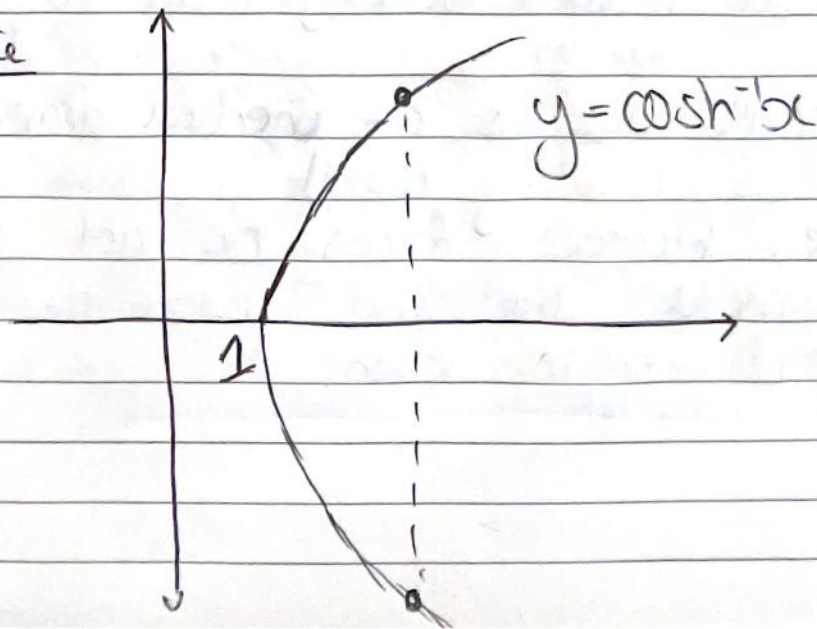 y = cosh⁻¹x
1